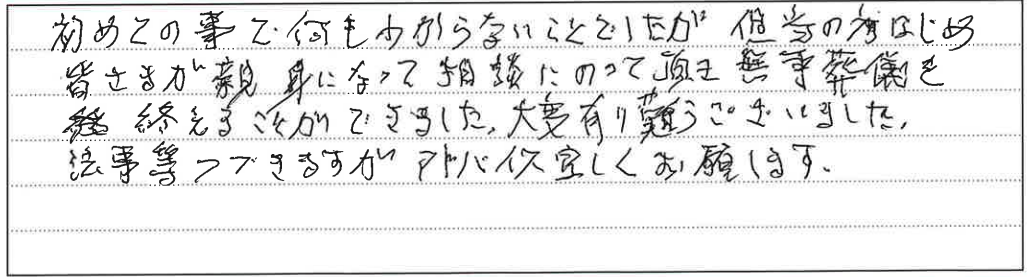 初めての事で何もわからないことでしたが 担当の方はじめ
皆さまが親身になって相談にのって頂き無事葬儀を
終えることができました。大変有り難うございました。
法事等つづきますがアドバイス宜しくお願します。